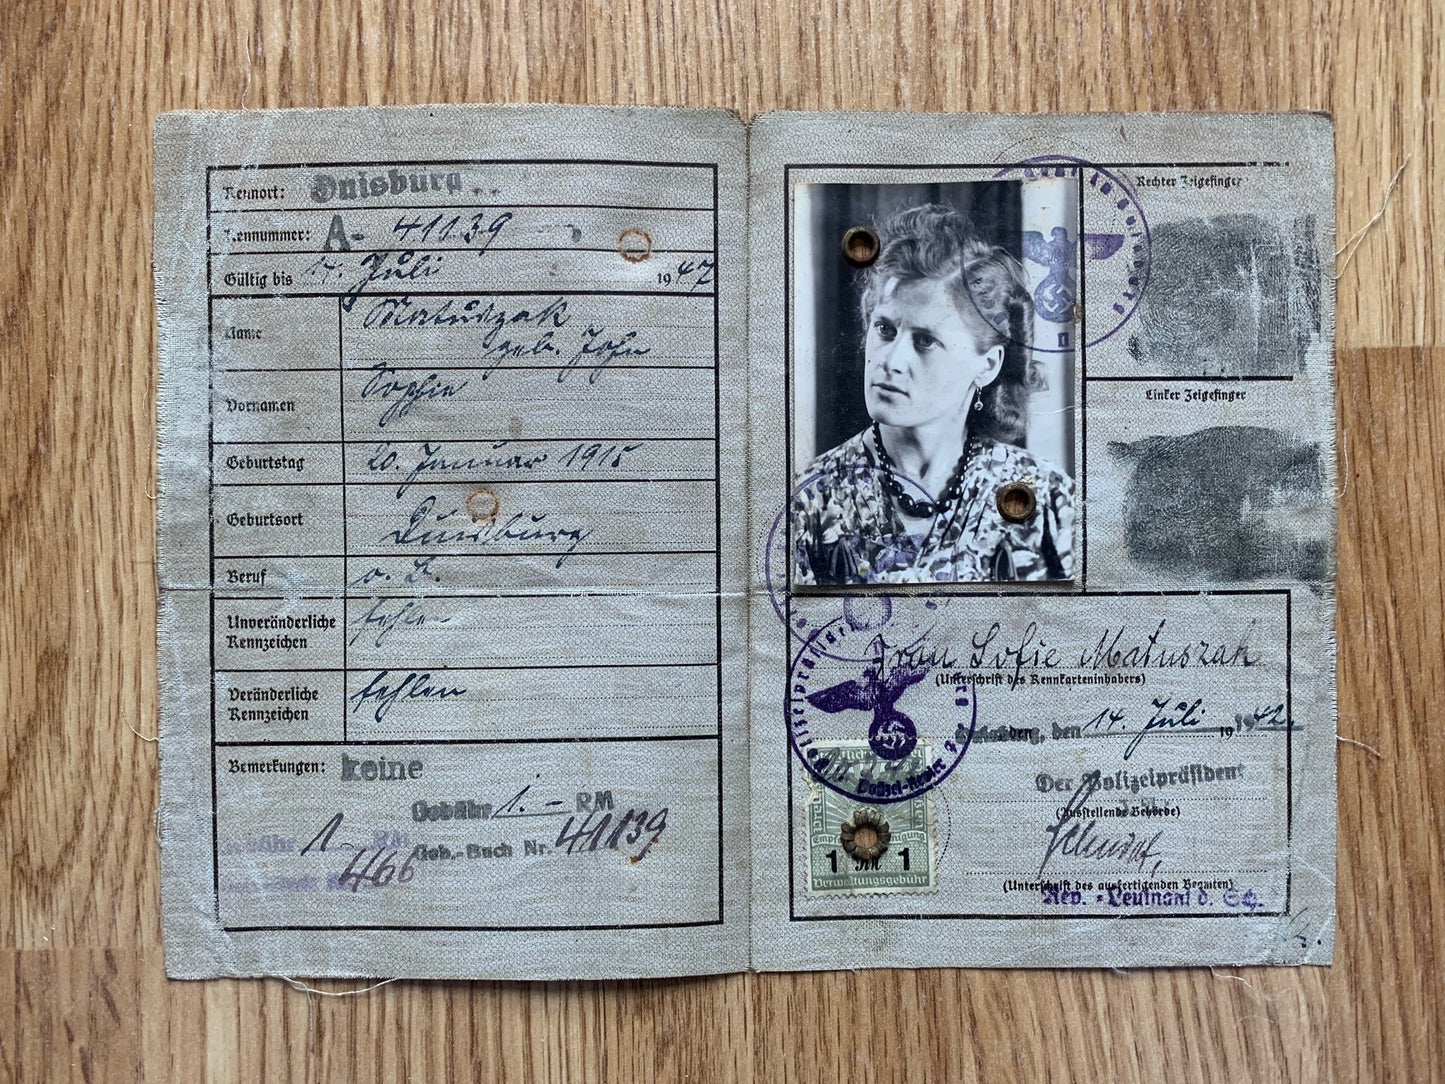 Kennort: Duisburg
Kennummer: A- 41139
Gültig bis 14. Juli 1947
Name Matuszak
geb. John
Vornamen Sophie
Geburtstag 20. Januar 1915
Geburtsort Duisburg
Beruf o. B.
Unveränderliche
Kennzeichen fehlen
Veränderliche
Kennzeichen fehlen
Bemerkungen: keine
Gebühr 1.- RM
Geb.-Buch Nr. 41139
Gebühr 1- RM
466
Rechter Zeigefinger
Linker Zeigefinger
Frau Sofie Matuszak
(Unterschrift des Kennkarteninhabers)
Duisburg, den 14. Juli 1942.
Der Polizeipräsident
(Ausstellende Behörde)
(Unterschrift des ausfertigenden Beamten)
Rev.-Leutnant d. Sch.
1 RM 1
Verwaltungsgebühr